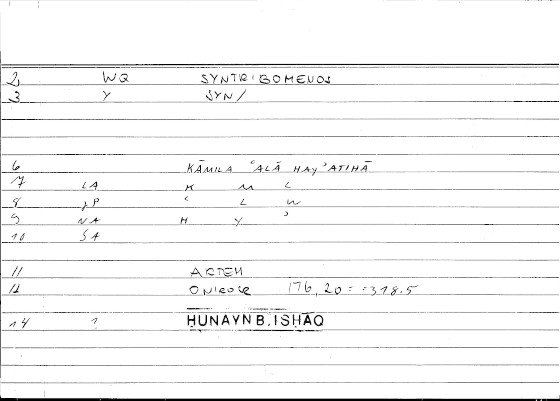 2 WQ SYNTRIBOMENOS
3 Y SYN/
6 KĀMILA ʿALĀ HAYʾATIHĀ
7 LA K M L
8 JP ʿ L W
9 NA H Y ʾ
10 SA
11 ARTEM
12 ONIROCR 176,20 = 318.5
14 1 ḤUNAYN B. ISḤĀQ